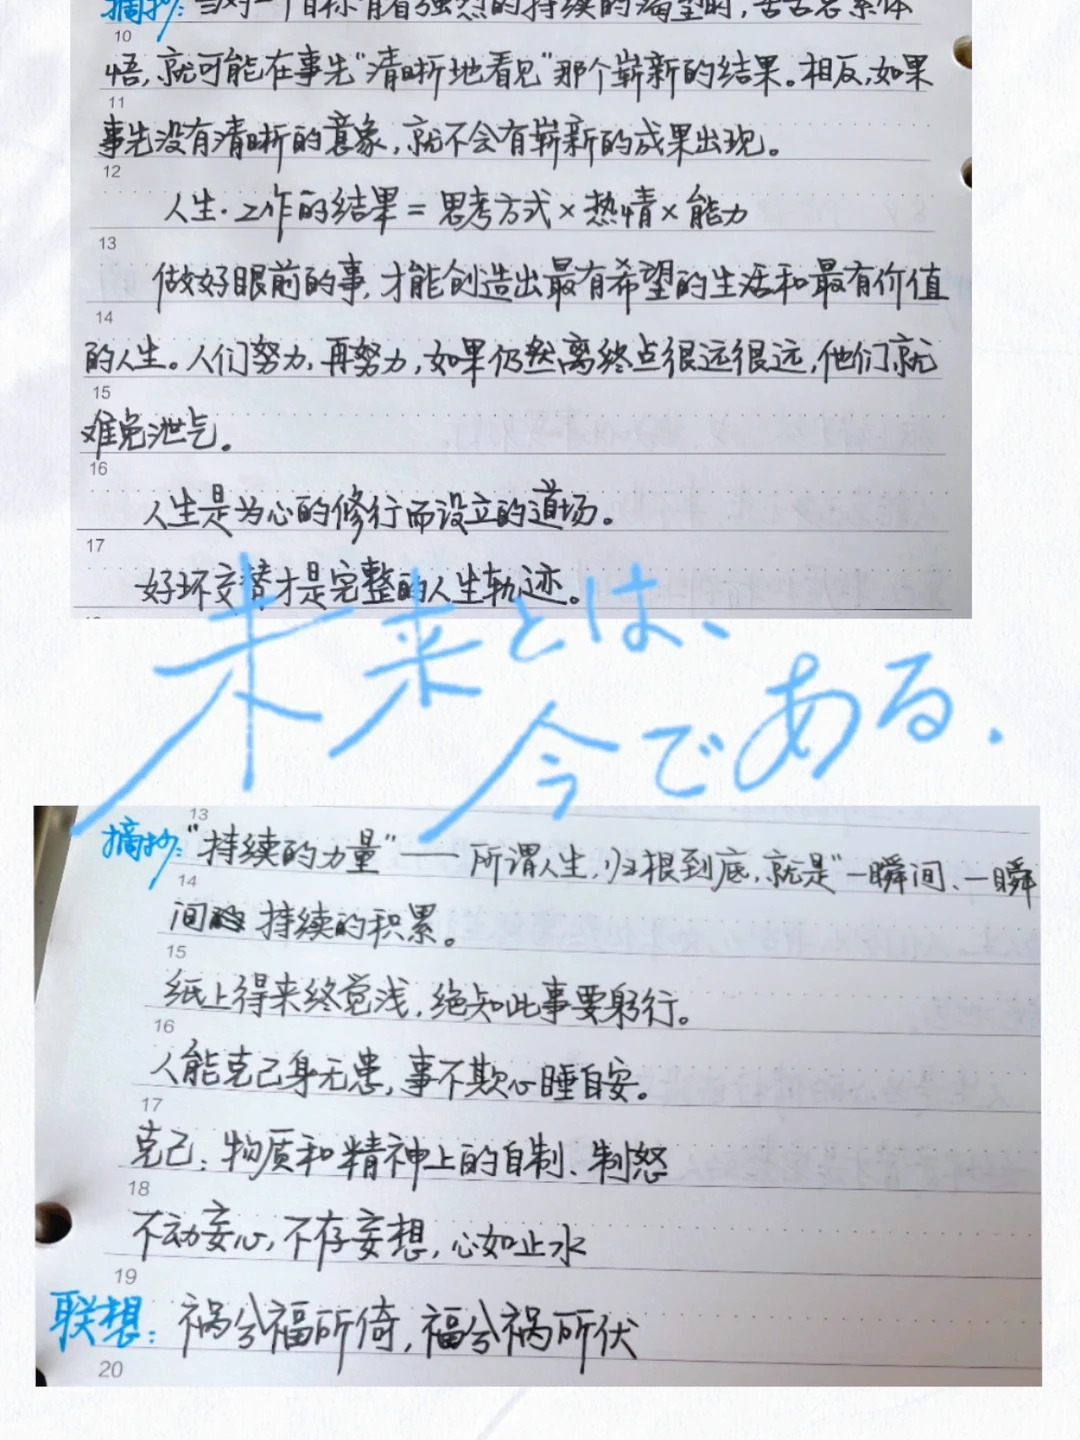 摘抄：当对一个目标有着强烈的持续的渴望时，苦苦思索体
10
悟，就可能在事先“清晰地看见”那个崭新的结果。相反，如果
11
事先没有清晰的意象，就不会有崭新的成果出现。
12
人生·工作的结果＝思考方式×热情×能力
13
做好眼前的事，才能创造出最有希望的生活和最有价值
14
的人生。人们努力，再努力，如果仍然离终点很远很远，他们就
15
难免泄气。
16
人生是为心的修行而设立的道场。
17
好坏交替才是完整的人生轨迹。
未来とは、
今である.
13
摘抄：“持续的力量”——所谓人生，归根到底，就是“一瞬间、一瞬
14
间 持续的积累。
15
纸上得来终觉浅，绝知此事要躬行。
16
人能克己身无患，事不欺心睡自安。
17
克己：物质和精神上的自制、制怒
18
不动妄心，不存妄想，心如止水
19
联想：祸兮福所倚，福兮祸所伏
20